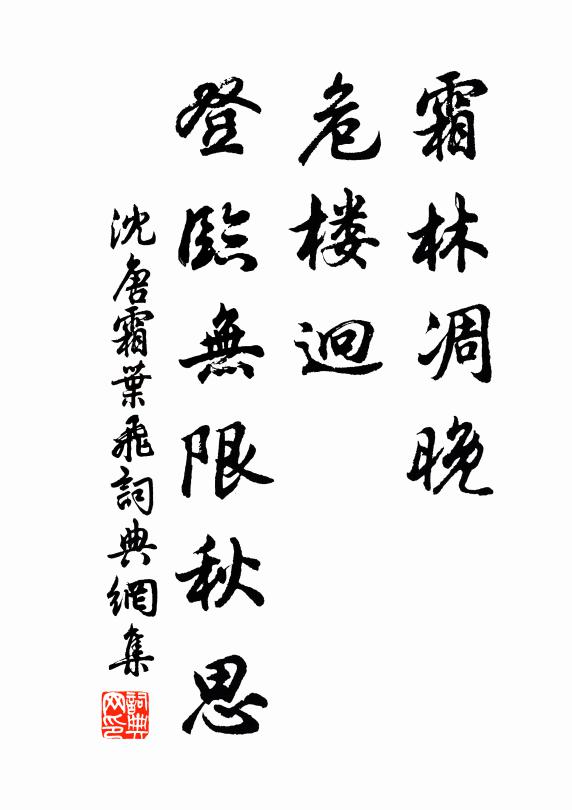 霜林凋晚
危楼迥
登臨無限秋思
沈唐霜葉飛詞典網集
詞典网印